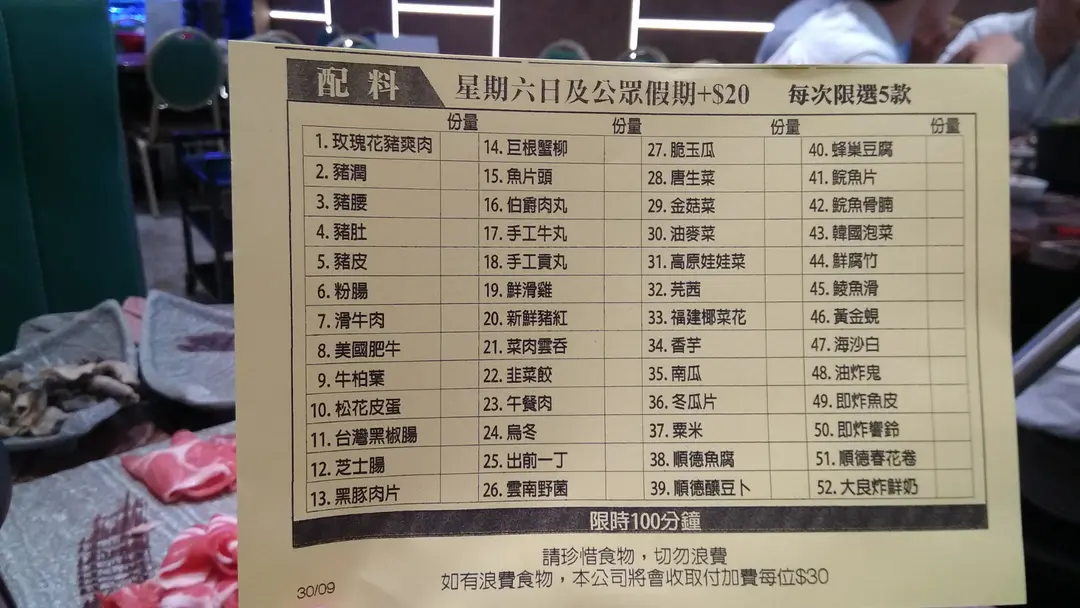 配料 星期六日及公眾假期+$20 每次限選5款
份量 份量 份量 份量
1. 玫瑰花豬爽肉
2. 豬潤
3. 豬腰
4. 豬肚
5. 豬皮
6. 粉腸
7. 滑牛肉
8. 美國肥牛
9. 牛柏葉
10. 松花皮蛋
11. 台灣黑椒腸
12. 芝士腸
13. 黑豚肉片
14. 巨根蟹柳
15. 魚片頭
16. 伯爵肉丸
17. 手工牛丸
18. 手工貢丸
19. 鮮滑雞
20. 新鮮豬紅
21. 菜肉雲吞
22. 韭菜餃
23. 午餐肉
24. 烏冬
25. 出前一丁
26. 雲南野菌
27. 脆玉瓜
28. 唐生菜
29. 金菇菜
30. 油麥菜
31. 高原娃娃菜
32. 芫茜
33. 福建椰菜花
34. 香芋
35. 南瓜
36. 冬瓜片
37. 粟米
38. 順德魚腐
39. 順德釀豆卜
40. 蜂巢豆腐
41. 鯇魚片
42. 鯇魚骨腩
43. 韓國泡菜
44. 鮮腐竹
45. 鯪魚滑
46. 黃金蜆
47. 海沙白
48. 油炸鬼
49. 即炸魚皮
50. 即炸響鈴
51. 順德春花卷
52. 大良炸鮮奶
限時100分鐘
請珍惜食物，切勿浪費
如有浪費食物，本公司將會收取付加費每位$30
30/09